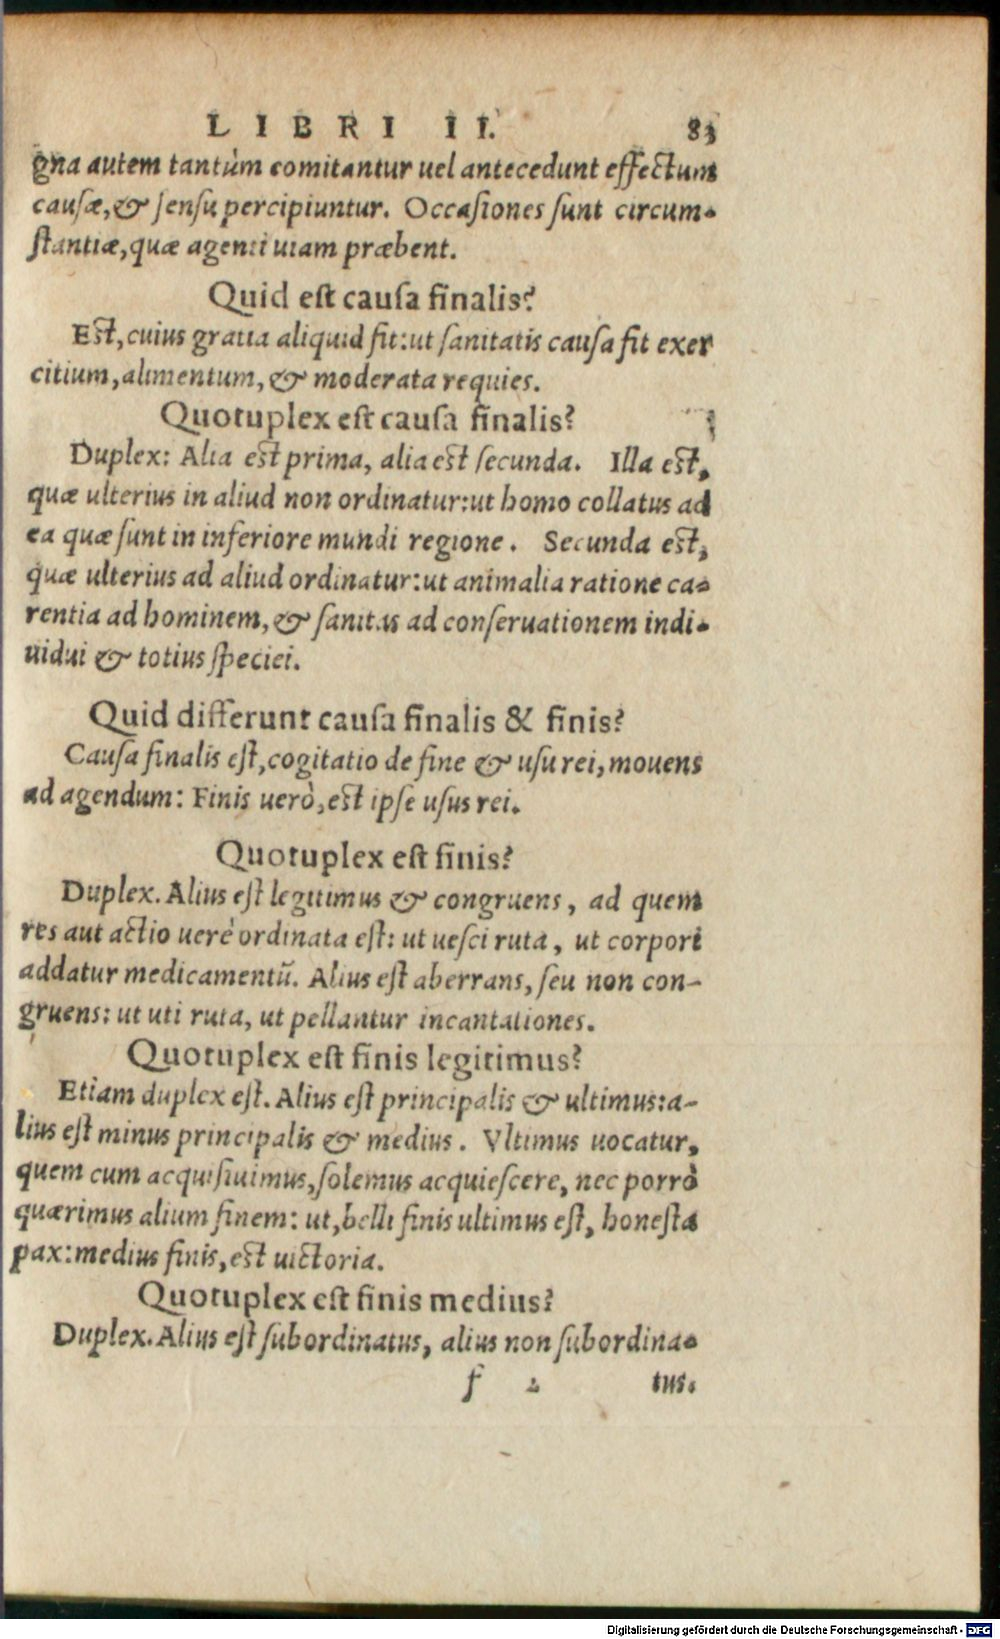 LIBRI II. 83
gna autem tantùm comitantur uel antecedunt effectum
causæ, & sensu percipiuntur. Occasiones sunt circum-
stantiæ, quæ agenti uiam præbent.
Quid est causa finalis?
Est, cuius gratia aliquid fit: ut sanitatis causa fit exer
citium, alimentum, & moderata requies.
Quotuplex est causa finalis?
Duplex: Alia est prima, alia est secunda. Illa est,
quæ ulterius in aliud non ordinatur: ut homo collatus ad
ea quæ sunt in inferiore mundi regione. Secunda est,
quæ ulterius ad aliud ordinatur: ut animalia ratione ca-
rentia ad hominem, & sanitas ad conseruationem indi-
uidui & totius speciei.
Quid differunt causa finalis & finis?
Causa finalis est, cogitatio de fine & usu rei, mouens
ad agendum: Finis uerò, est ipse usus rei.
Quotuplex est finis?
Duplex. Alius est legitimus & congruens, ad quem
res aut actio uerè ordinata est: ut uesci ruta, ut corpori
addatur medicamentũ. Alius est aberrans, seu non con-
gruens: ut uti ruta, ut pellantur incantationes.
Quotuplex est finis legitimus?
Etiam duplex est. Alius est principalis & ultimus: a-
lius est minus principalis & medius. Vltimus uocatur,
quem cum acquisiuimus, solemus acquiescere, nec porrò
quærimus alium finem: ut, belli finis ultimus est, honesta
pax: medius finis, est uictoria.
Quotuplex est finis medius?
Duplex. Alius est subordinatus, alius non subordina-
f 2 tus.
Digitalisierung gefördert durch die Deutsche Forschungsgemeinschaft - DFG